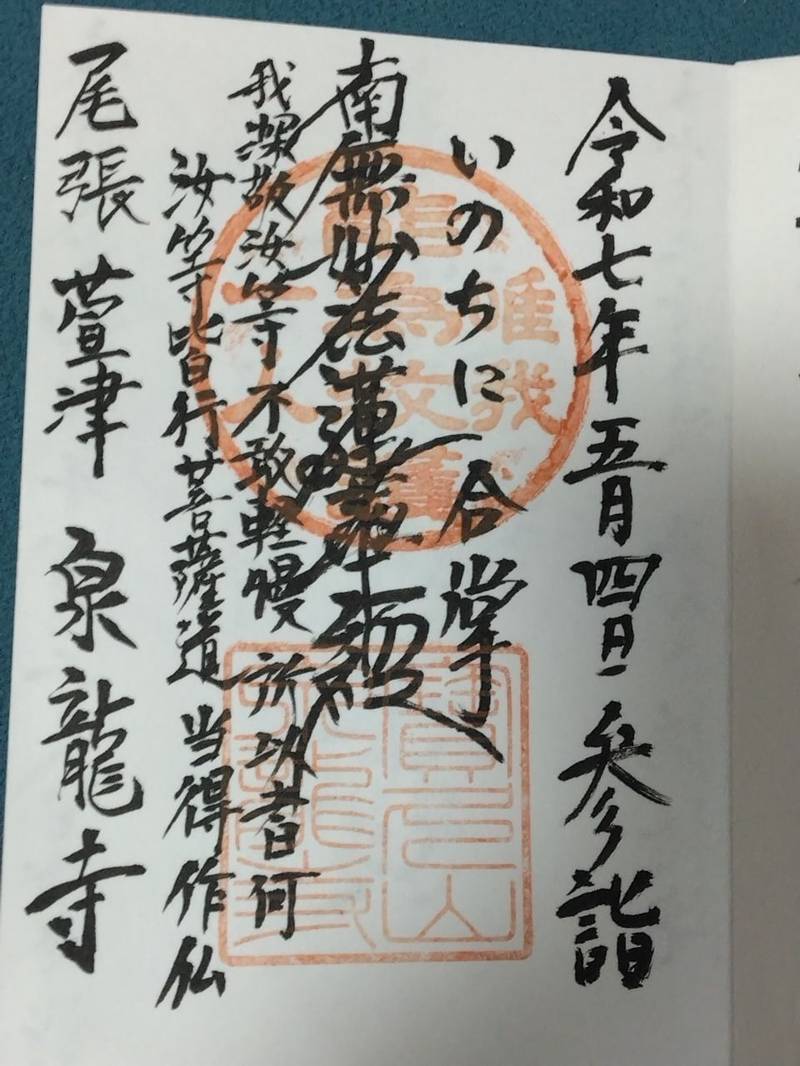 令和七年五月四日 参詣
いのちに合掌
南無妙法蓮華経
我深敬汝等不敢軽慢 所以者何
汝等皆行菩薩道 当得作仏
尾張 萱津 泉龍寺